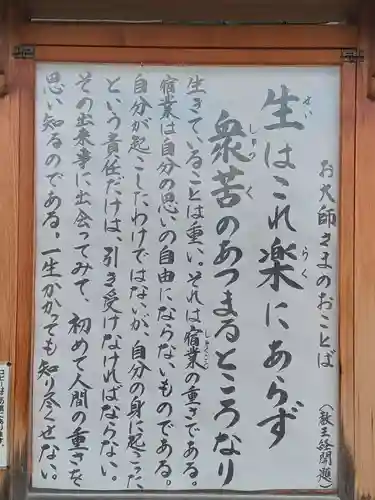 お大師さまのおことば
(教王経開題)
生はこれ楽にあらず
せい
らく
衆苦のあつまるところなり
しゅっく
生きていることは重い。それは宿業の重さである。
しゅくごう
宿業は自分の思いの自由にならないものである。
自分が起こしたわけではないが、自分の身に起こった
という責任だけは、引き受けなければならない。
その出来事に出会ってみて、初めて人間の重さを
思い知るのである。一生かかっても知り尽くせない。